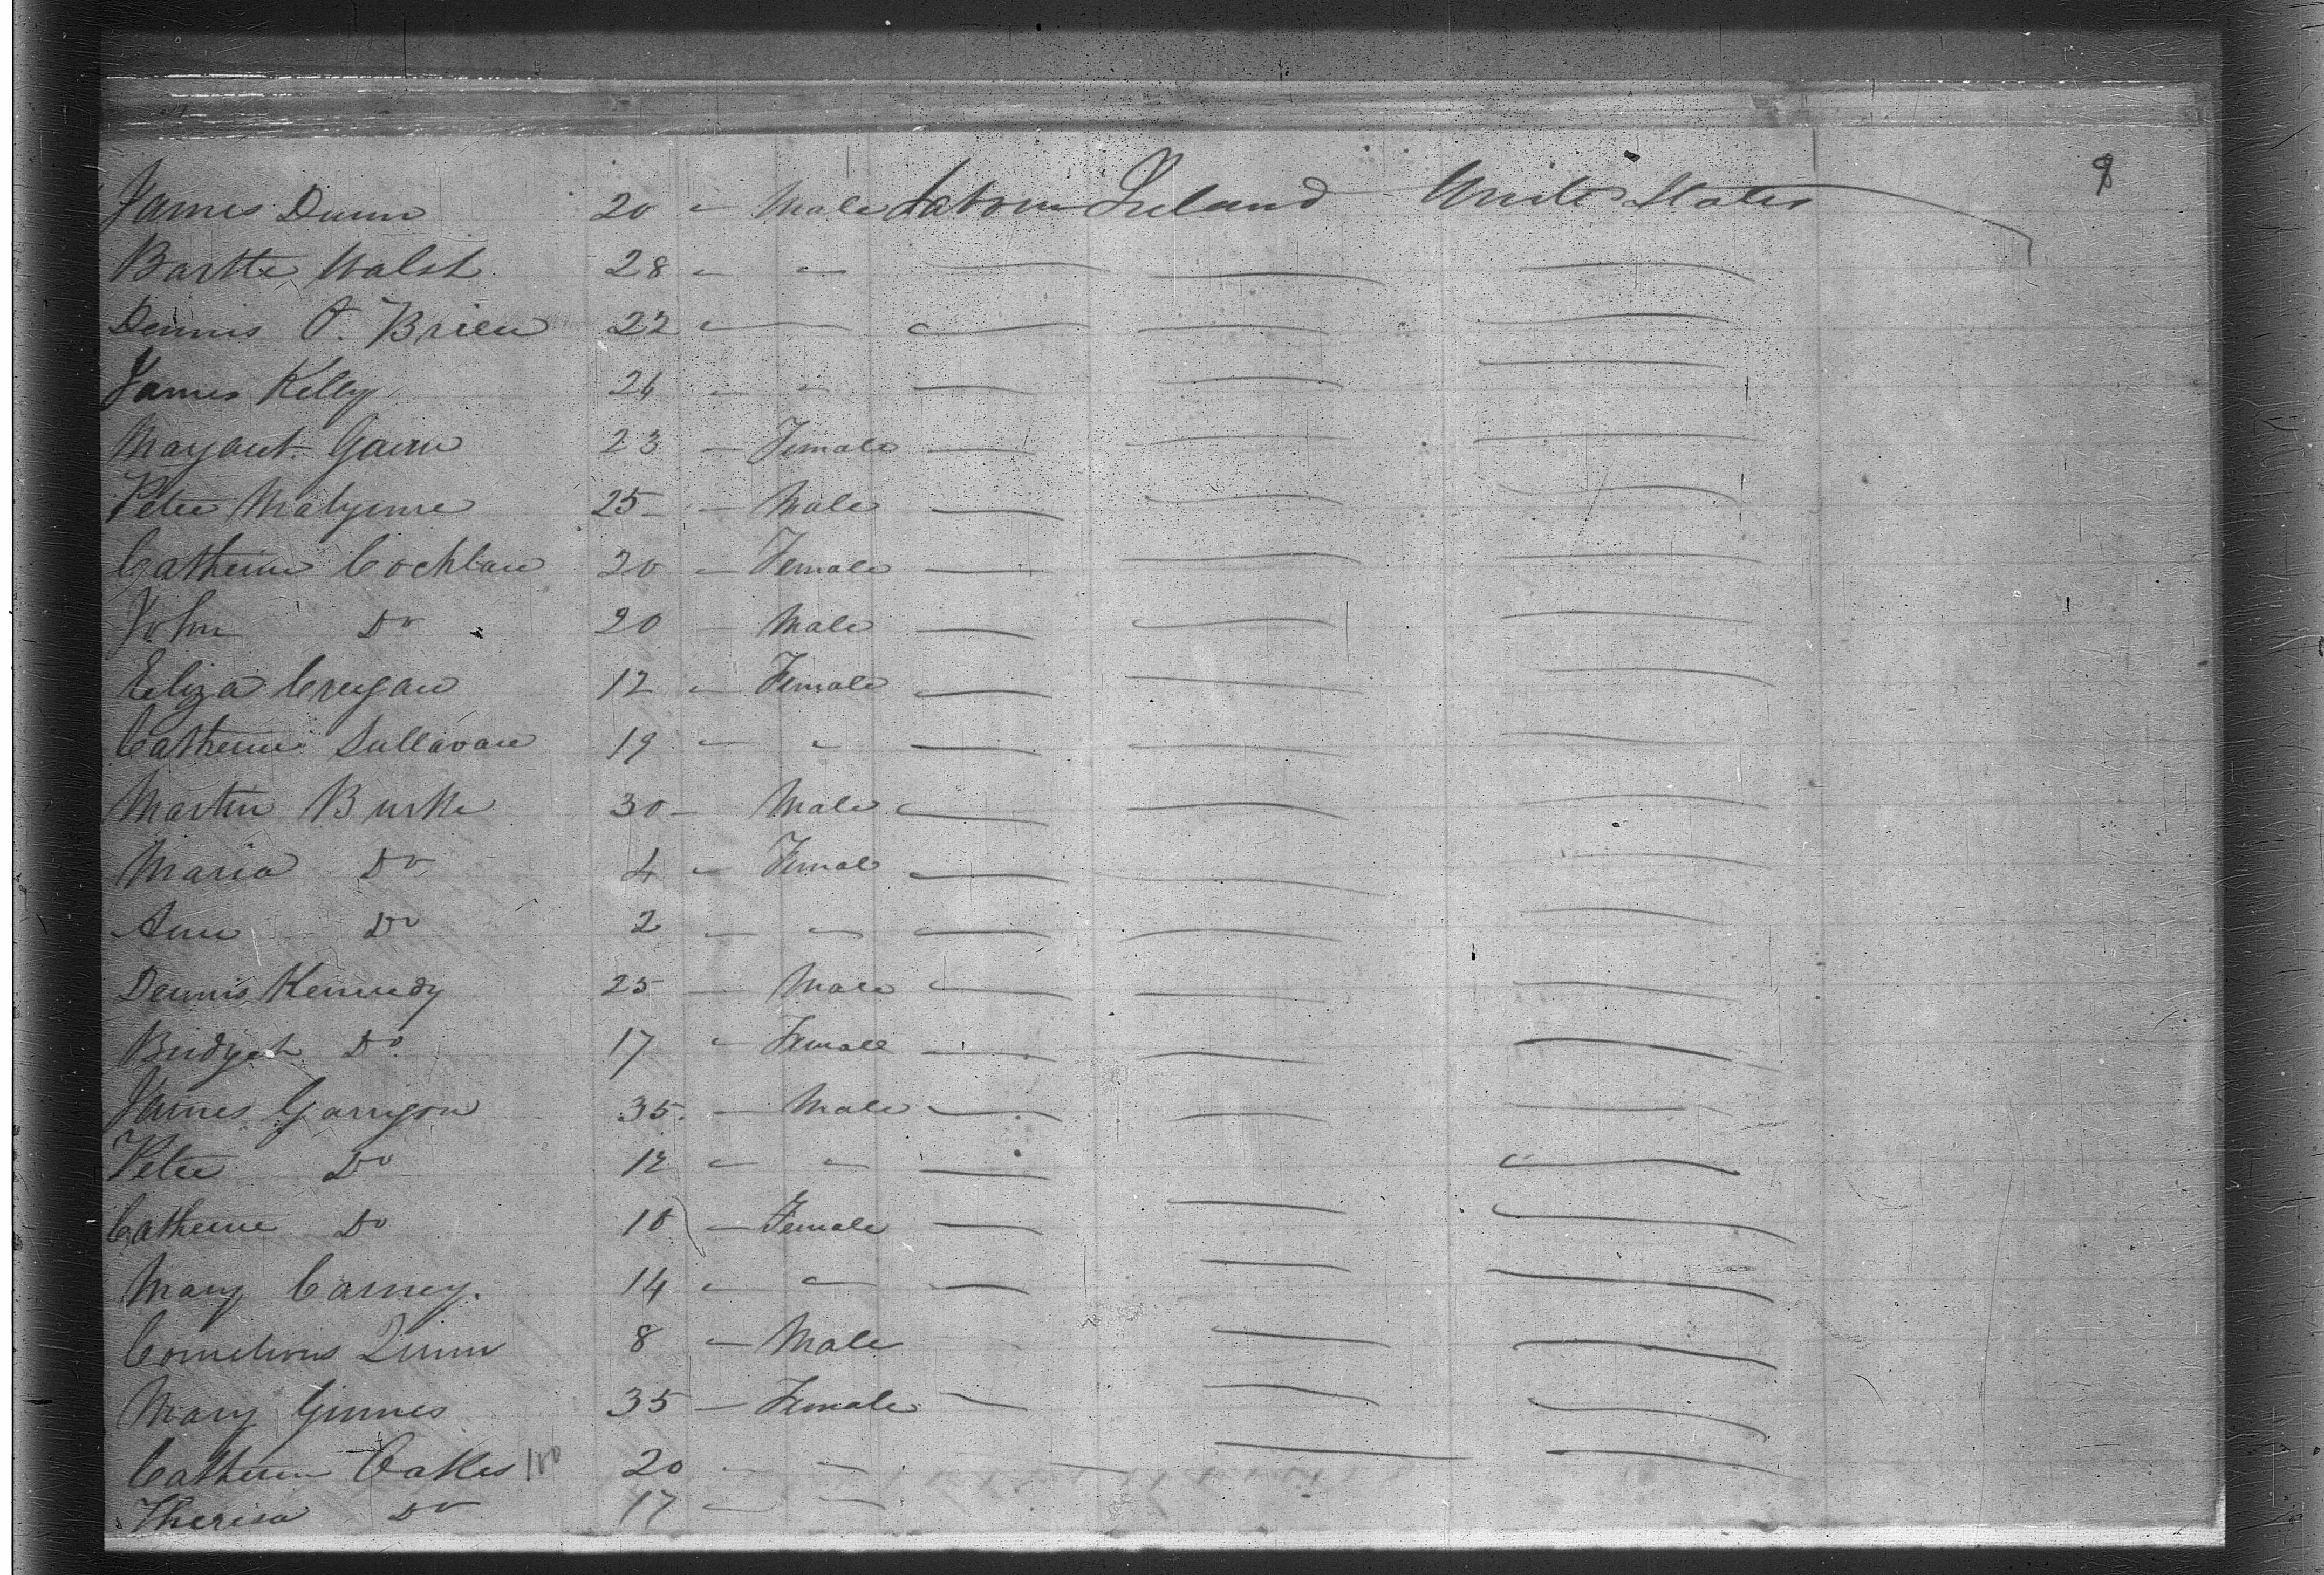 8
James Dunn 20 " Male Labour Ireland United States
Bartte Walsh 28 " "
Dennis O. Brien 22 "
James Kelly 26 " "
Margaret Gavin 23 — Female
Peter 25 — Male
Catherine Cochlan 20 — Female
John Do 20 — Male
Eliza Creegan 12 " Female
Catherine Sullavan 19 " "
Martin Burke 30 — Male
Maria Do 4 " Female
Ann Do 2 " "
Dennis Kennedy 25 — Male
Bridget Do 17 " Female
James Garrigon 35 — Male
Peter Do 12 " "
Catherine Do 10 — Female
Mary Carney. 14 " "
Cornelious Quinn 8 — Male
Mary Ginnes 35 — Female
Catherine Oakes 100 20 " "
Theresa Do 17 " "